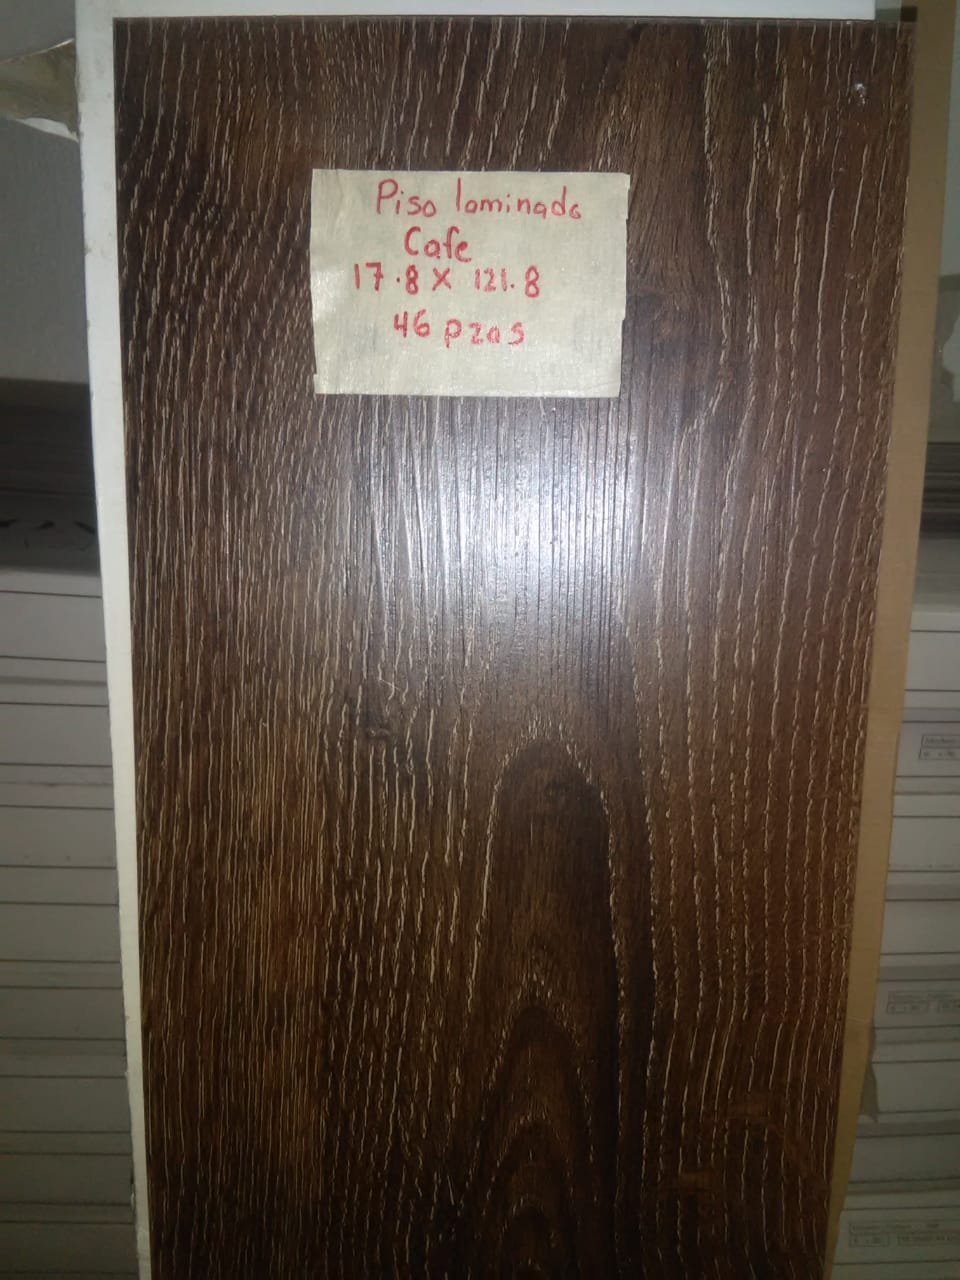 Piso laminado
Cafe
17.8 X 121.8
46 pzas